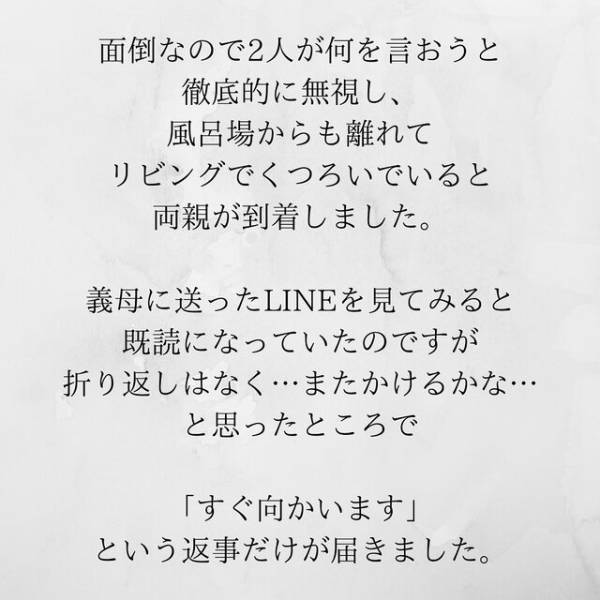 面倒なので2人が何を言おうと
徹底的に無視し、
風呂場からも離れて
リビングでくつろいでいると
両親が到着しました。
義母に送ったLINEを見てみると
既読になっていたのですが
折り返しはなく…またかけるかな…
と思ったところで
「すぐ向かいます」
という返事だけが届きました。